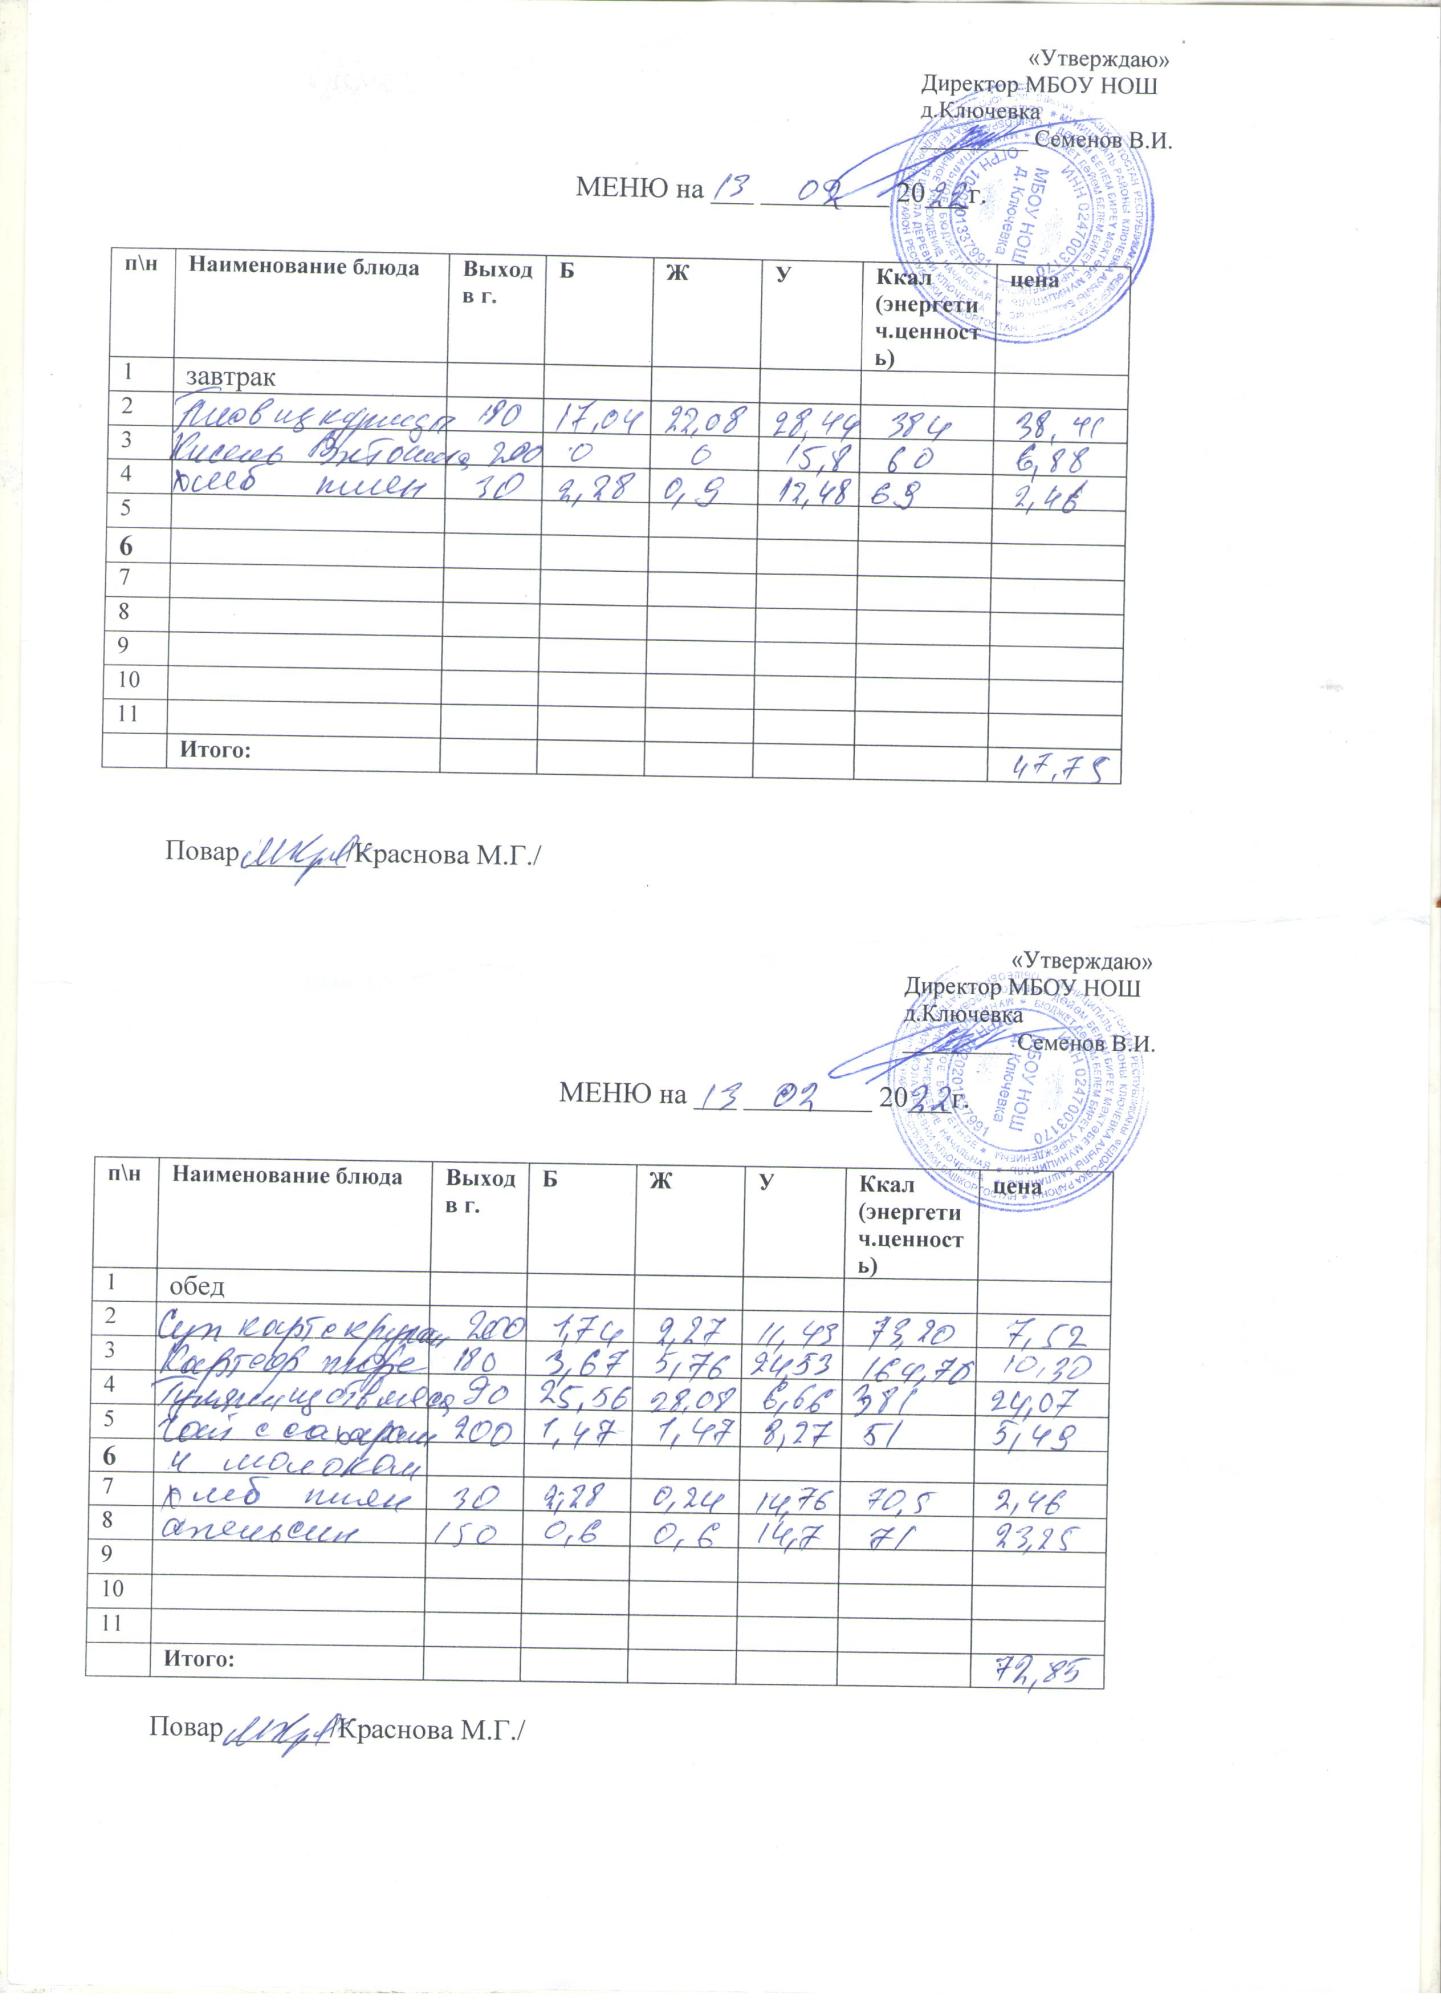 «Утверждаю»
Директор МБОУ НОШ
д.Ключевка
Семенов В.И.
МЕНЮ на 13 02 2022г.
п\н Наименование блюда Выход в г. Б Ж У Ккал (энергетич.ценность) цена
1 завтрак
2 Плов из курицы 180 17,04 22,08 28,44 384 38,41
3 Кисель Витошка 200 0 0 15,8 60 6,88
4 хлеб пшен 30 2,28 0,9 12,48 69 2,46
5
6
7
8
9
10
11
Итого: 47,75
Повар /Краснова М.Г./
«Утверждаю»
Директор МБОУ НОШ
д.Ключевка
Семенов В.И.
МЕНЮ на 13 02 2022г.
п\н Наименование блюда Выход в г. Б Ж У Ккал (энергетич.ценность) цена
1 обед
2 Суп карт с крупой 200 1,74 2,27 11,43 73,20 7,52
3 Картоф пюре 180 3,67 5,76 24,53 164,70 10,30
4 Гуляш из отв мяса 90 25,56 28,08 6,66 381 24,07
5 Чай с сахаром 200 1,47 1,47 8,27 51 5,49
6 и молоком
7 хлеб пшен 30 2,28 0,24 14,76 70,5 2,46
8 апельсин 150 0,6 0,6 14,7 71 23,25
9
10
11
Итого: 72,85
Повар /Краснова М.Г./
МБОУ НОШ
д. Ключевка
ИНН 0247003170